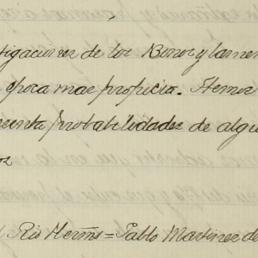 tigaciones de los Bonos y lamen
epoca mas propicia. Hemos
probabilidades de algu
Rio Herms = Pablo Martinez de